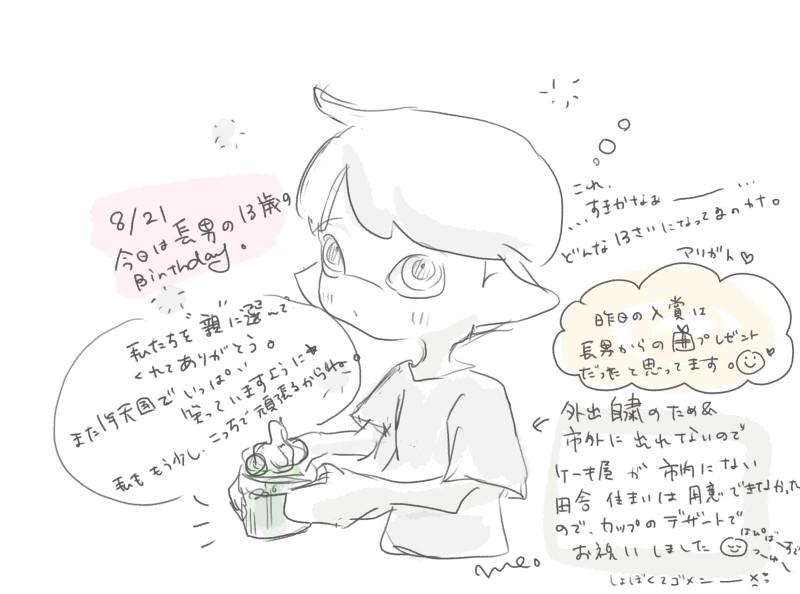 8/21
今日は長男の13歳の
Birthday。
私たちを"親"に選んで
くれてありがとう。
また1年天国でいっぱい
笑っていますように
私ももう少し、こっちで頑張るからね。
これ、
すきかなぁ ――― …
…どんな13さいになってるのカナ。
アリガト♡
昨日の入賞は
長男からの プレゼント
だったと思ってます。
← 外出自粛のため&
市外に出れてないので
ケーキ屋が市内にない
田舎住まいは用意できなかった
ので、カップのデザートで
お祝いしました
しょぼくてゴメンー
meo